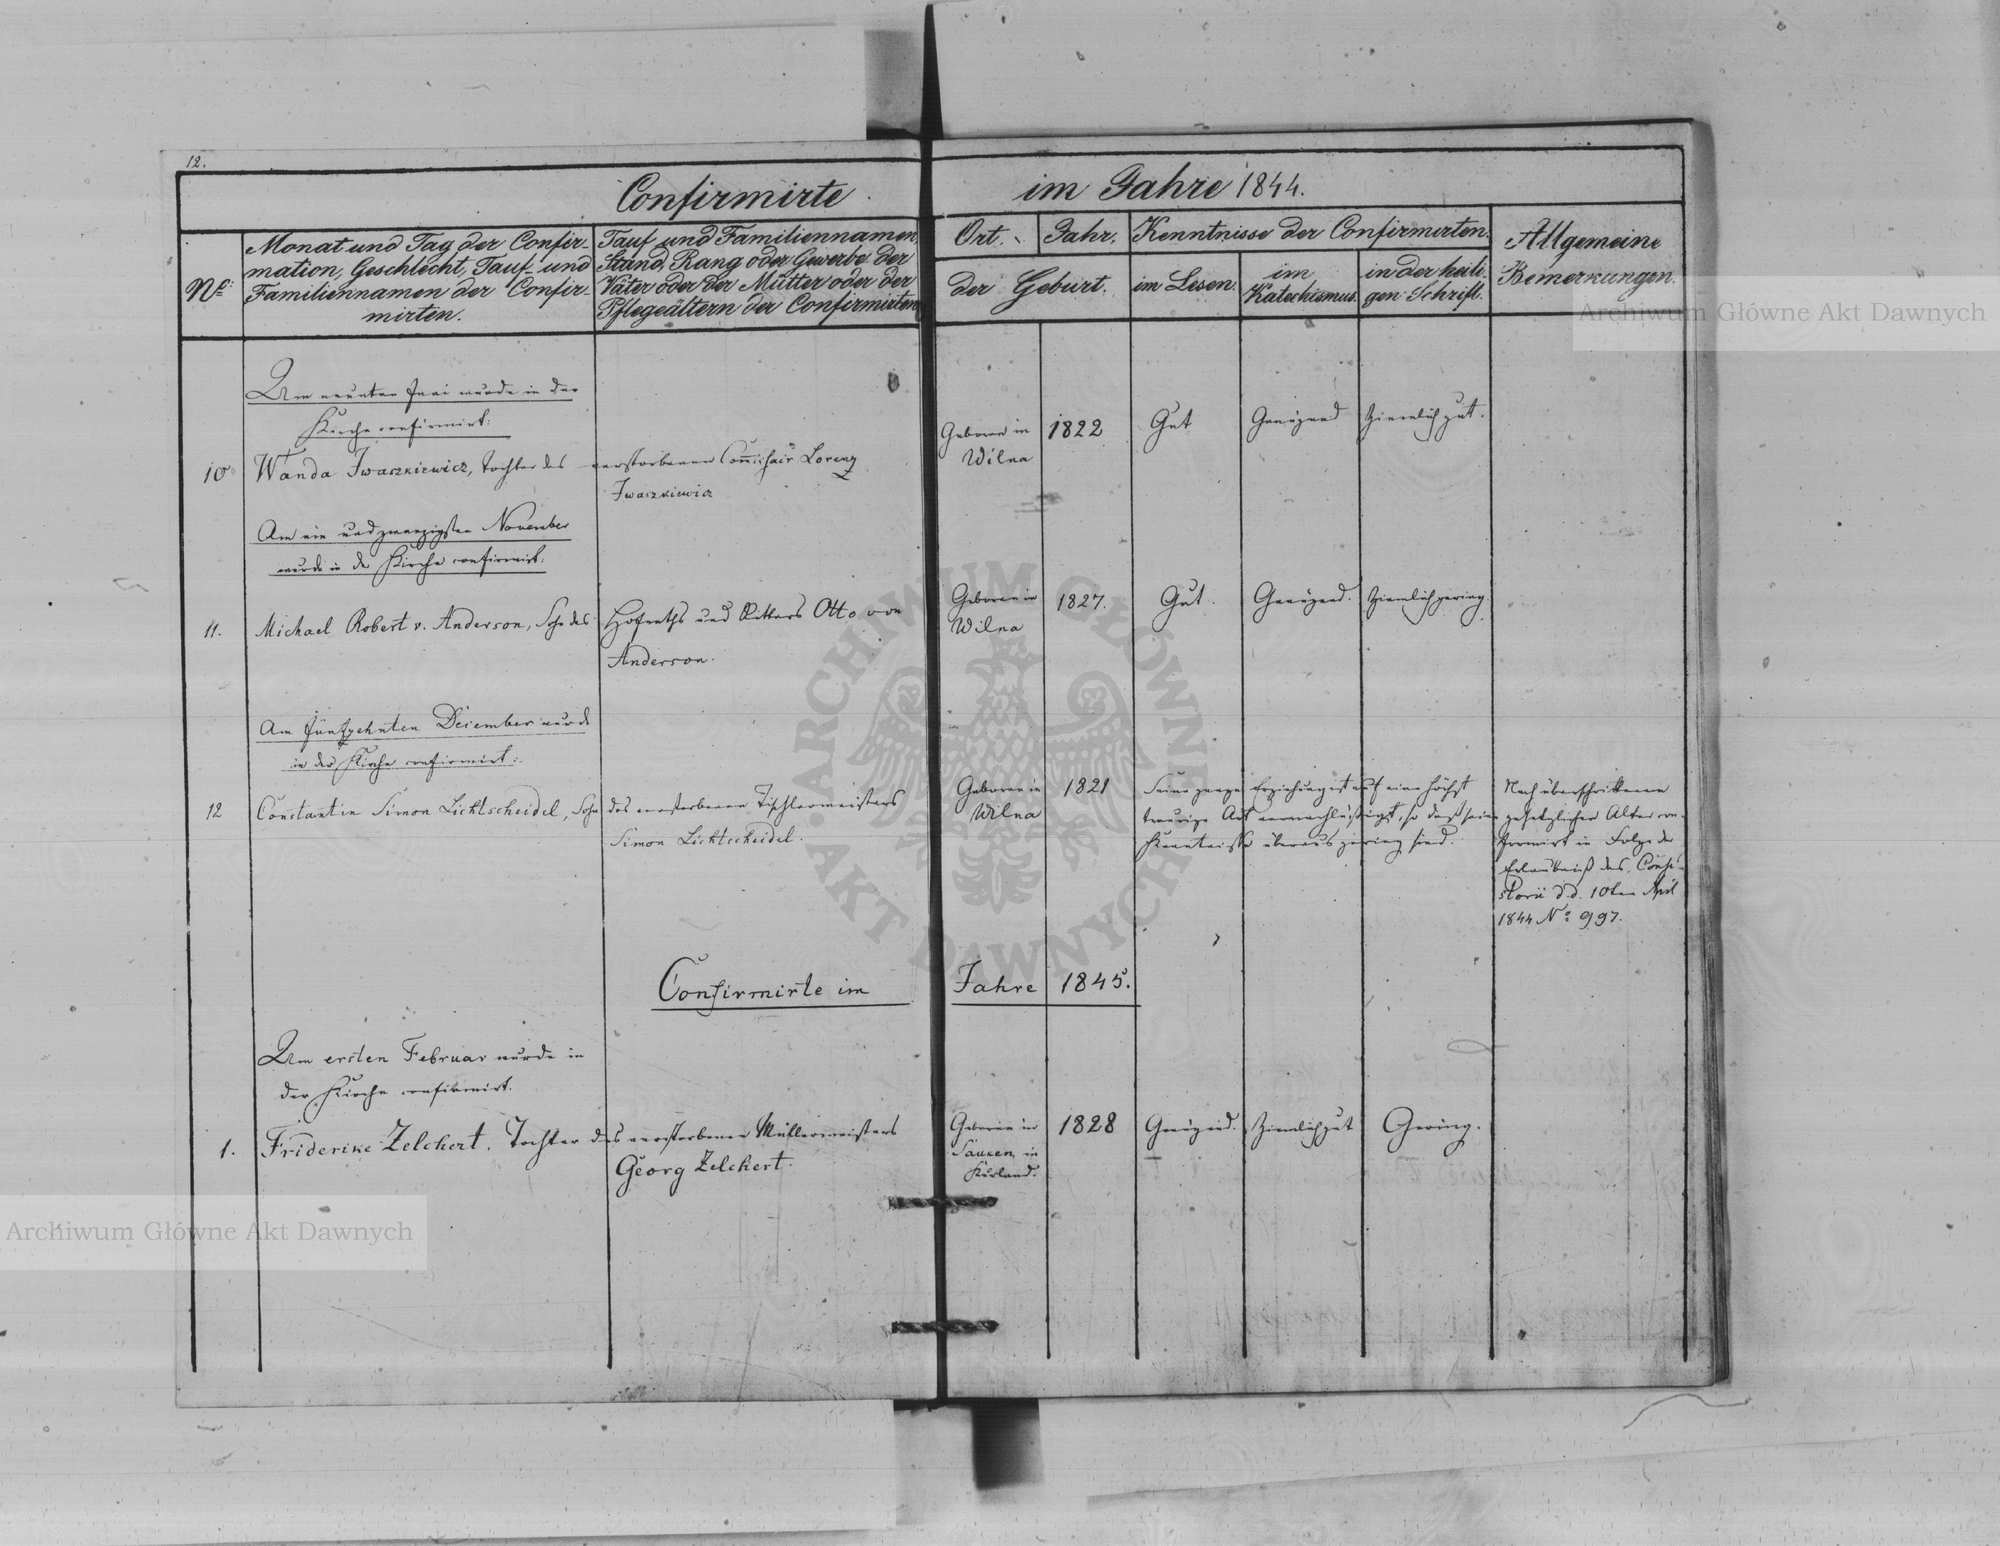 12.
Confirmirte im Jahre 1844.
No: 
Monat und Tag der Confir-
mation, Geschlecht, Tauf- und
Familiennamen der Confir-
mirten.
Tauf und Familiennamen,
Stand, Rang oder Gewerbe der
Väter oder der Mütter oder der
Pflegeältern der Confirmirten
Ort. Jahr.
der Geburt.
Kenntnisse der Confirmirten.
im Lesen.
im
Katechismus.
in der heili-
gen Schrift.
Allgemeine
Bemerkungen.
Am neunten Juni wurde in der
Kirche confirmirt:
10 Wanda Iwaszkiewicz, Tochter des verstorbenen Commissair Lorenz
Iwaszkiewicz
Geboren in
Wilna
1822
Gut
Genügend
Ziemlich gut.
Am ein und zwanzigsten November
wurde in der Kirche confirmirt:
11. Michael Robert v. Anderson, Sohn des Hofraths und Ritters Otto von
Anderson.
Geboren in
Wilna
1827.
Gut.
Genügend.
Ziemlich gering.
Am fünfzehnten December wurde
in der Kirche confirmirt:
12 Constantin Simon Lichtscheidel, Sohn des verstorbenen Tischlermeisters
Simon Lichtscheidel.
Geboren in
Wilna
1821
Seine ganze Erziehung ist auf eine höchst
traurige Art vernachlässigt, so daß seine
Kenntnisse überaus gering sind.
Nach überschrittenem
gesetzlichen Alter con-
firmirt in Folge der
Erlaubniß des Consi-
storii d.d. 10ten April
1844 No: 997.
Confirmirte im Jahre 1845.
Am ersten Februar wurde in
der Kirche confirmirt.
1. Friderike Zelchert. Tochter des verstorbenen Müllermeisters
Georg Zelchert.
Geboren in
Sauken in
Kurland.
1828
Genügend.
Ziemlich gut
Gering.
Archiwum Główne Akt Dawnych
Archiwum Główne Akt Dawnych
ARCHIWUM GŁÓWNE
AKT DAWNYCH